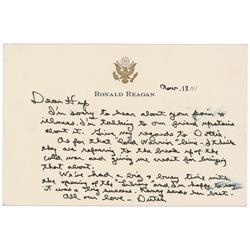 RONALD REAGAN
Nov. 13 '91
Dear Hup
I'm sorry to hear about your pain &
illness. I'm talking to our friend upstairs
about it. Give my regards to Dottie.
As for that "Cold Warrior" line - I think
they are referring to the break up of the
cold war and giving me credit for bringing
that about.
We've had a big & busy time with
the opening of the "Library" and I'm happy to say
it was a big success. Nancy sends her best.
All our love - Dutch